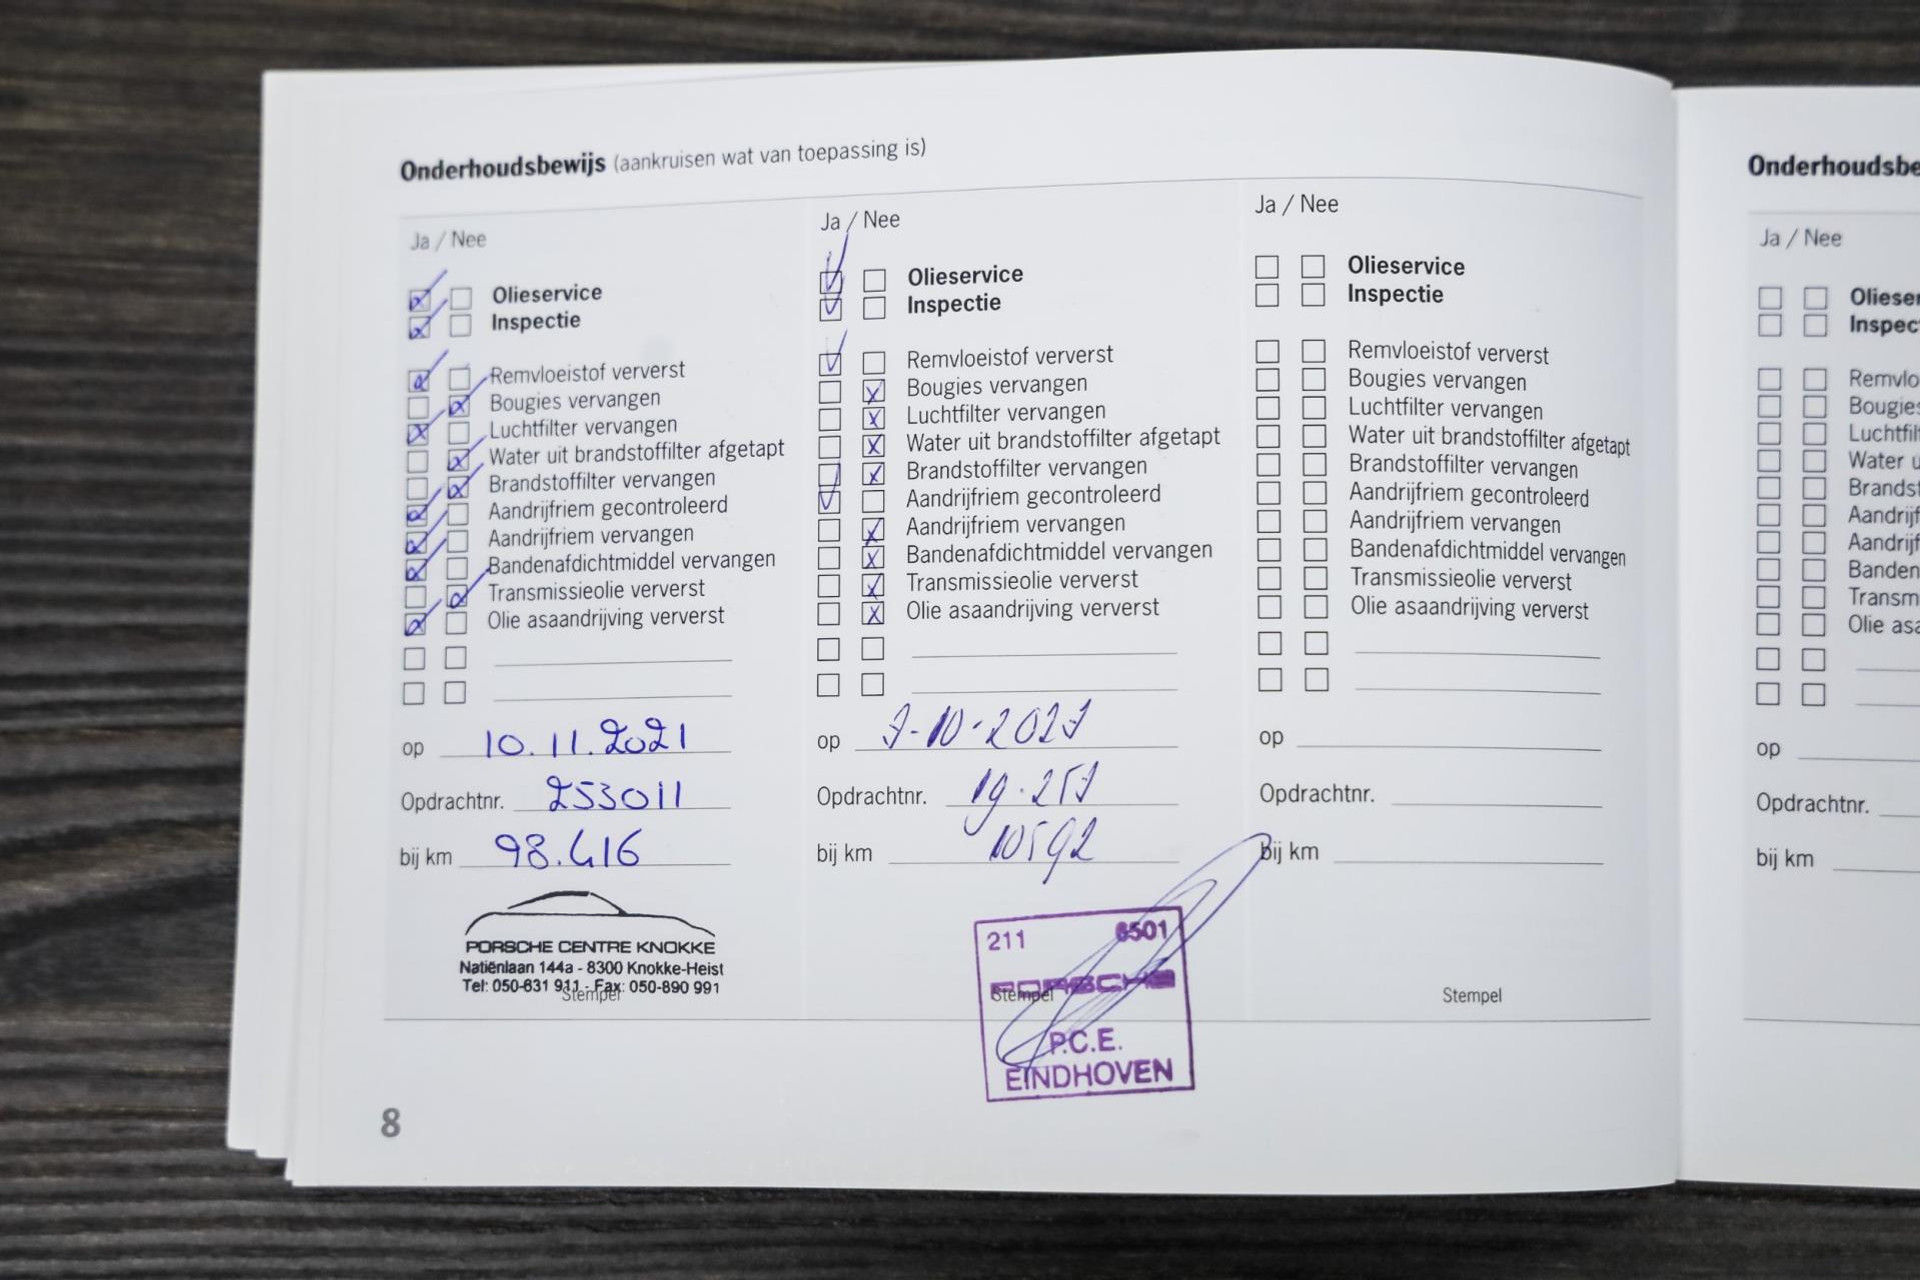 Onderhoudsbewijs (aankruisen wat van toepassing is)
Ja / Nee
Olieservice
Inspectie
Remvloeistof ververst
Bougies vervangen
Luchtfilter vervangen
Water uit brandstoffilter afgetapt
Brandstoffilter vervangen
Aandrijfriem gecontroleerd
Aandrijfriem vervangen
Bandenafdichtmiddel vervangen
Transmissieolie ververst
Olie asaandrijving ververst
op 10.11.2021
Opdrachtnr. 253011
bij km 98.416
PORSCHE CENTRE KNOKKE
Natiënlaan 144a - 8300 Knokke-Heist
Tel: 050-631 911 - Fax: 050-890 991
Stempel
Ja / Nee
Olieservice
Inspectie
Remvloeistof ververst
Bougies vervangen
Luchtfilter vervangen
Water uit brandstoffilter afgetapt
Brandstoffilter vervangen
Aandrijfriem gecontroleerd
Aandrijfriem vervangen
Bandenafdichtmiddel vervangen
Transmissieolie ververst
Olie asaandrijving ververst
op
Opdrachtnr.
bij km
211 6501
PORSCHE
Stempel
P.C.E.
EINDHOVEN
Ja / Nee
Olieservice
Inspectie
Remvloeistof ververst
Bougies vervangen
Luchtfilter vervangen
Water uit brandstoffilter afgetapt
Brandstoffilter vervangen
Aandrijfriem gecontroleerd
Aandrijfriem vervangen
Bandenafdichtmiddel vervangen
Transmissieolie ververst
Olie asaandrijving ververst
op
Opdrachtnr.
bij km
Stempel
8
Onderhoudsbe
Ja / Nee
Olieser
Inspec
Remvlo
Bougies
Luchtfilt
Water u
Brandst
Aandrijf
Aandrijf
Banden
Transm
Olie asa
op
Opdrachtnr.
bij km